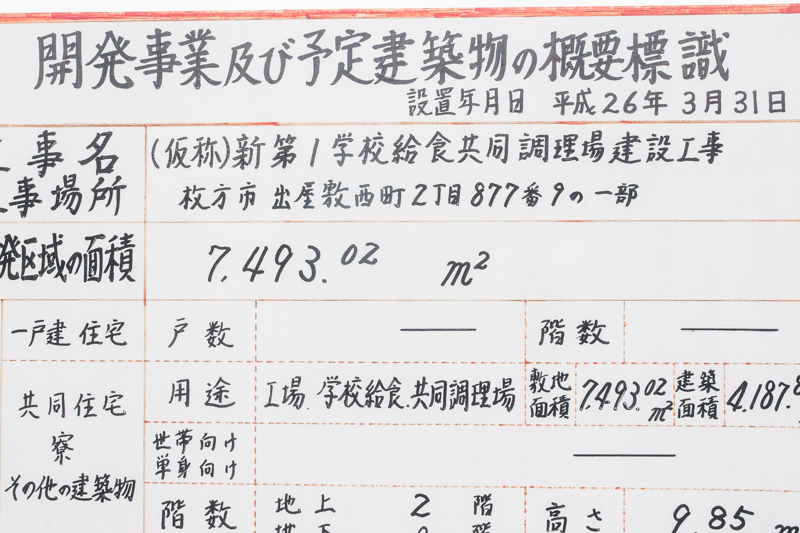 開発事業及び予定建築物の概要標識
設置年月日 平成26年 3月31日
事名 (仮称)新第1学校給食共同調理場建設工事
事場所 枚方市 出屋敷西町2丁目877番9の一部
発区域の面積 7,493.02 m²
一戸建住宅 戸数 ― 階数 ―
共同住宅 寮 その他の建築物
用途 工場.学校給食.共同調理場 敷地面積 7,493.02 m² 建築面積 4,187.
世帯向け 単身向け ―
階数 地上 2 階 高さ 9.85 m
地下 階